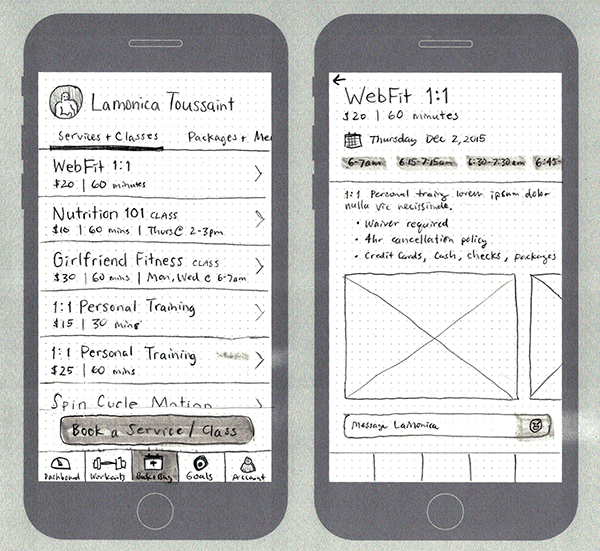 Lamonica Toussaint
Services + Classes Packages + Me
WebFit 1:1
$20 | 60 minutes
Nutrition 101 CLASS
$10 | 60 mins | Thurs @ 2-3pm
Girlfriend Fitness CLASS
$30 | 60 mins | Mon, Wed @ 6-7am
1:1 Personal Training
$15 | 30 mins
1:1 Personal Training
$25 | 60 mins
Spin Cycle Motion
Book a Service / Class
Dashboard Workouts Goals Account
WebFit 1:1
$20 | 60 minutes
Thursday Dec 2, 2015
6-7am 6:15-7:15am 6:30-7:30am 6:45-
1:1 Personal traing lorem ipsum dolor
nulla vic necissitude.
• Waiver required
• 4hr cancellation policy
• Credit Cards, Cash, checks, packages
Message LaMonica